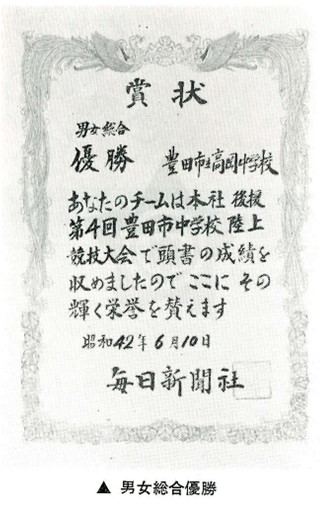 賞状
男女総合
優勝 豊田市立高岡中学校
あなたのチームは本社後援
第4回豊田市中学校陸上
競技大会で頭書の成績を
収めましたのでここにその
輝く栄誉を賛えます
昭和42年6月10日
毎日新聞社
▲ 男女総合優勝